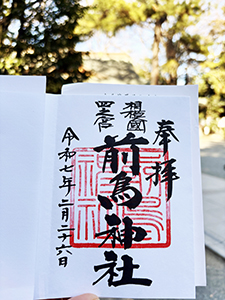 奉拝
相模國
四之宮
前鳥神社
令和七年二月二十六日